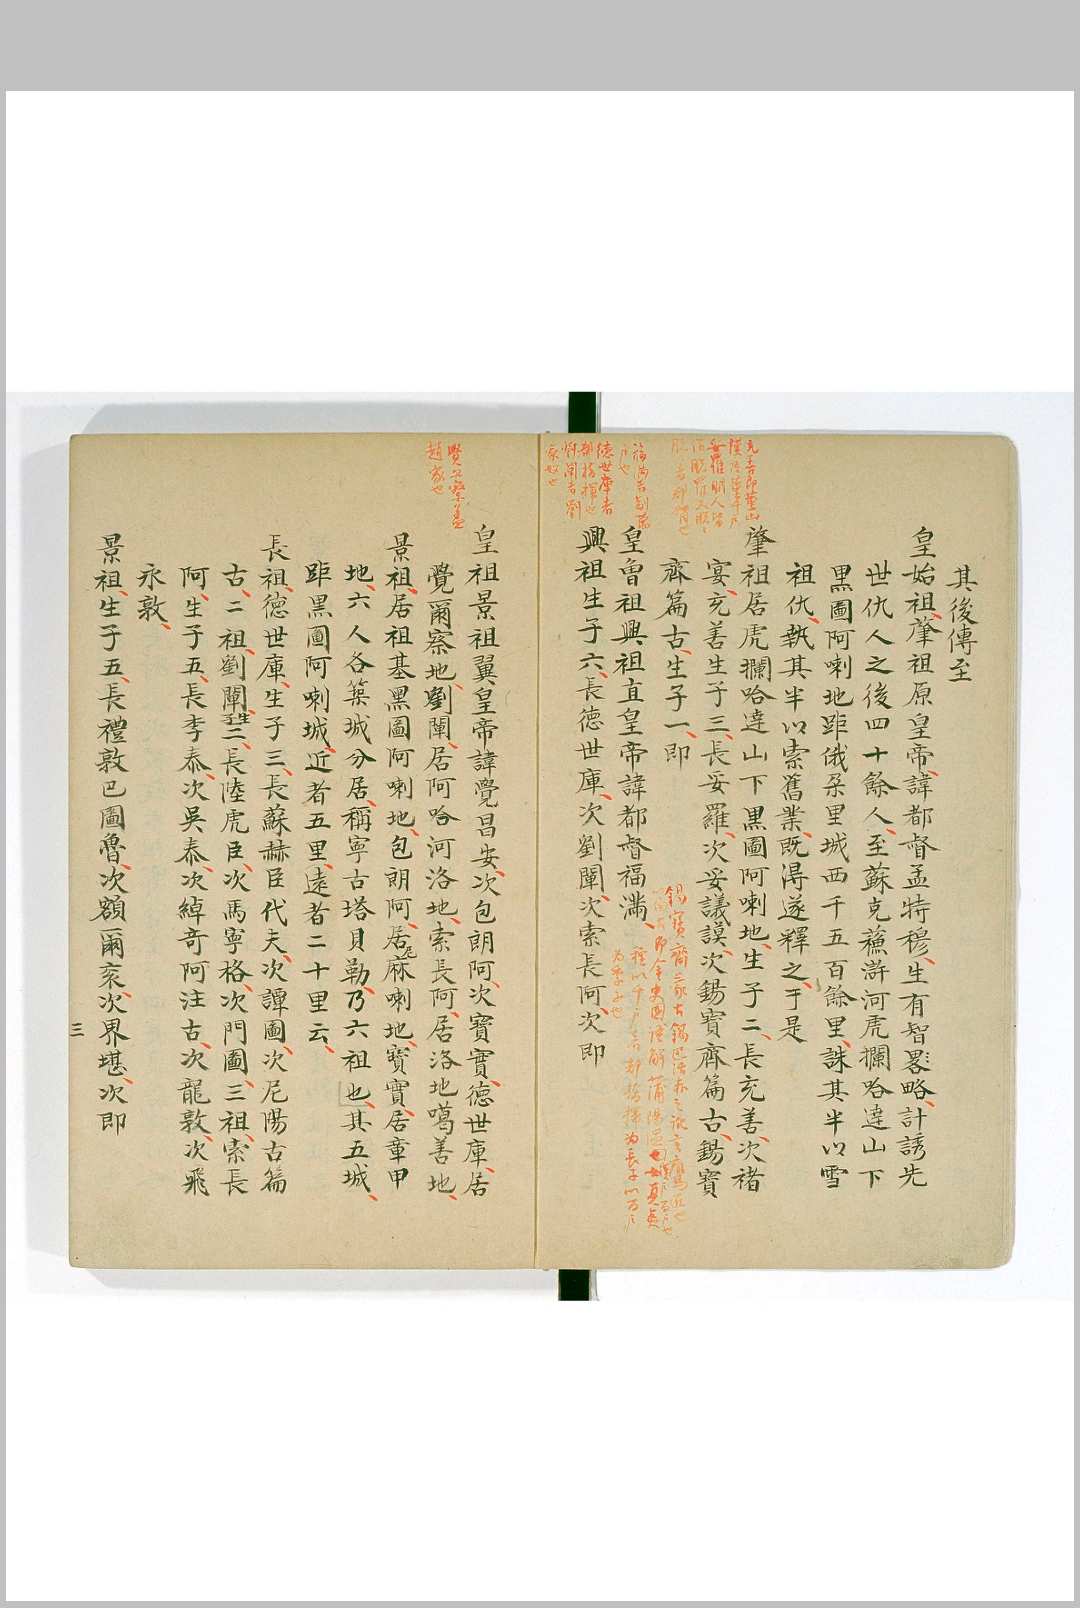 其後傳至
皇始祖肇祖原皇帝諱都督孟特穆生有智畧略計誘先
世仇人之後四十餘人至蘇克蘓滸河虎攔哈達山下
黑圖阿喇地距俄朶里城西千五百餘里誅其半以雪
祖仇執其半以索舊業既得遂釋之于是
肇祖居虎攔哈達山下黑圖阿喇地生子二長充善次褚
宴充善生子三長妥羅次妥議謨次錫寶齊篇古錫寶
齊篇古生子一即
皇曾祖興祖直皇帝諱都督福滿
興祖生子六長德世庫次劉闡次索長阿次即
皇祖景祖翼皇帝諱覺昌安次包朗阿次寶寶德世庫居
覺爾察地劉闡居阿哈河洛地索長阿居洛地噶善地
景祖居祖基黑圖阿喇地包朗阿居尼麻喇地寶寶居章甲
地六人各築城分居稱寧古塔貝勒乃六祖也其五城
距黑圖阿喇城近者五里遠者二十里云
長祖德世庫生子三長蘇赫臣代夫次譚圖次尼陽古篇
古二祖劉闡生子三長陸虎臣次馬寧格次門圖三祖索長
阿生子五長李泰次吳泰次綽奇阿注古次龍敦次飛
永敦
景祖生子五長禮敦巴圖魯次額爾衮次界堪次即
三
德世庫者
都指揮也
趙家也